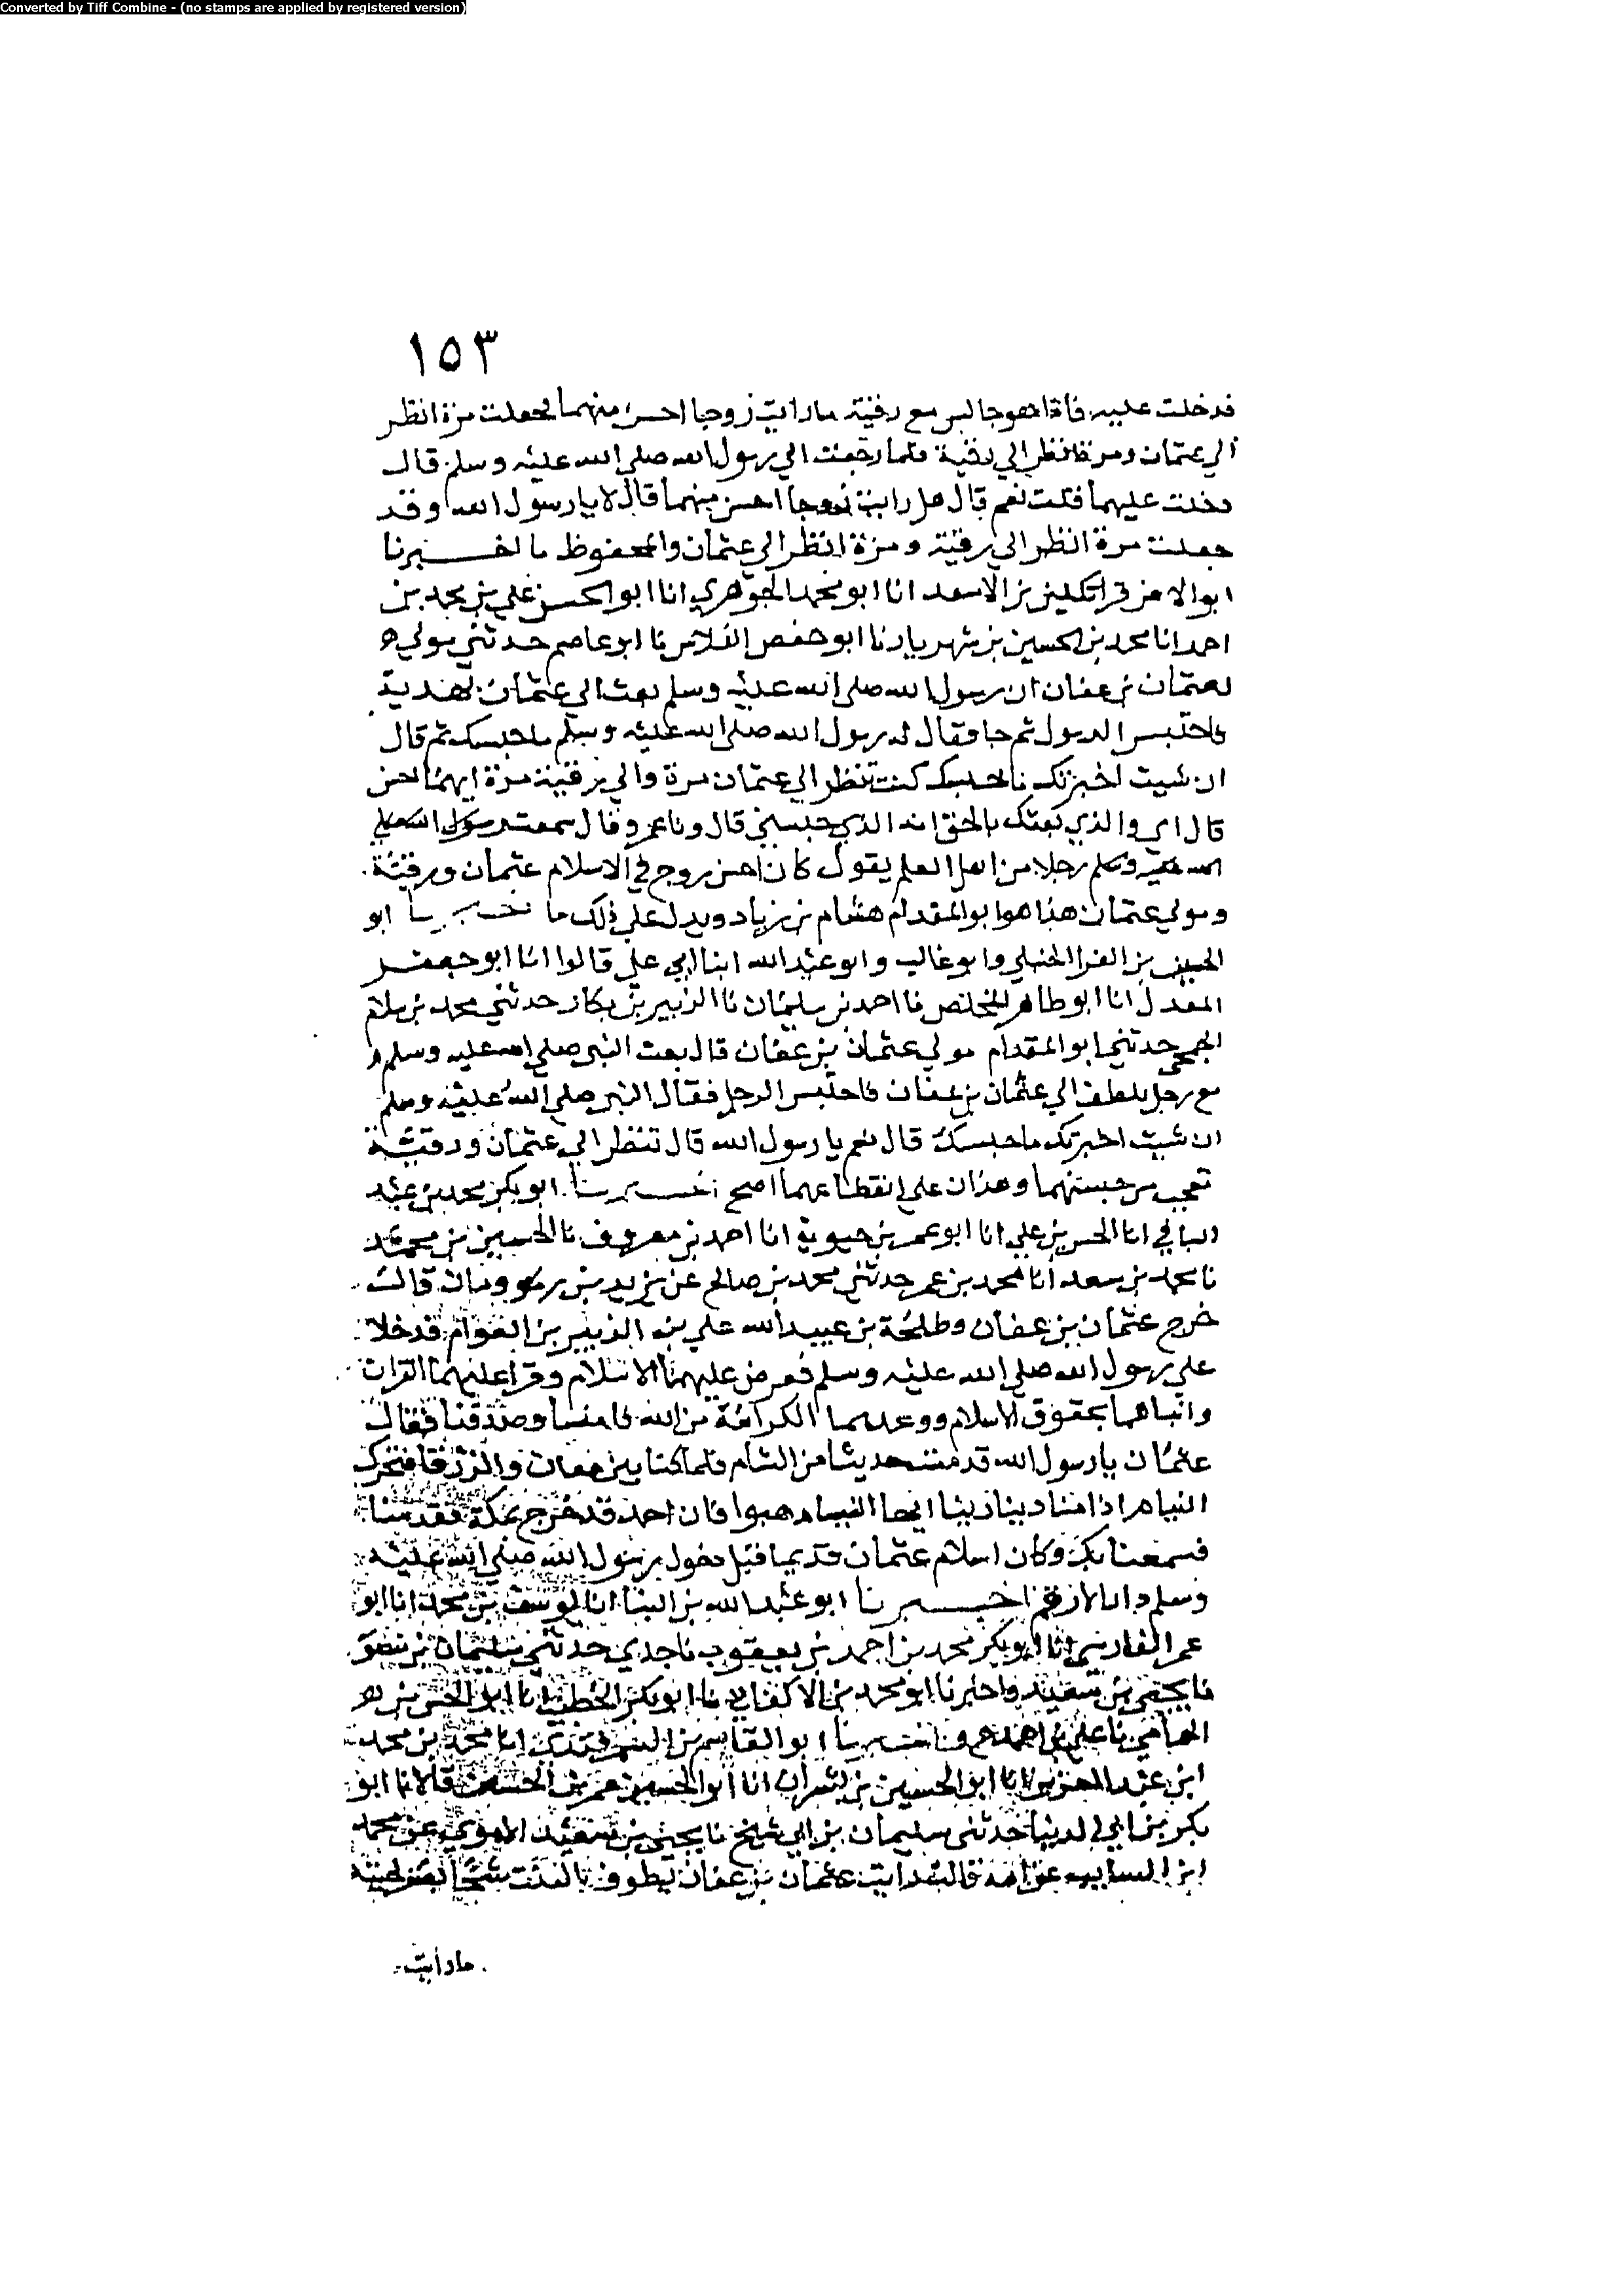 Converted by Tiff Combine - (no stamps are applied by registered version)
١٥٣
فدخلت عليه فاذا هو جالس مع رقية ما رايت زوجا احسن منهما فجعلت مرة انظر
الى عثمان ومرة انظر الي رقية فلما رجعت الي رسول الله صلى الله عليه وسلم قال
دخلت عليهما فقلت نعم قال هل رايت زوجا احسن منهما قال لا يا رسول الله وقد
جعلت مرة انظر الي رقية ومرة انظر الي عثمان والمحفوظ ما اخبرنا
ابو الاعز قراتكين بن الاسعد انا ابو محمد الجوهري انا ابو الحسن علي بن محمد بن
احمد انا محمد بن الحسين بن شهريار نا ابو حفص الفلاس نا ابو عاصم حدثني مولي
لعثمان بن عفان ان رسول الله صلى الله عليه وسلم بعث الي عثمان بهدية
فاحتبس الرسول ثم جا فقال له رسول الله صلى الله عليه وسلم ما حبسك ثم قال
ان شيت اخبرتك ما حبسك كنت تنظر الي عثمان مرة والي رقية مرة ايهما احسن
قال اي والذي بعثك بالحق انه الذي حبسني قال ونا عمرو قال سمعت رسول الله صلي
الله عليه وسلم رجلا من اهل العلم يقول كان احسن زوج في الاسلام عثمان ورقية
ومولي عثمان هذا هو ابو المقدام هشام بن زياد ويدل علي ذلك ما اخبرنا ابو
الحسين بن الفرا الحنبلي وابو غالب وابو عبد الله ابنا ابي علي قالوا انا ابو جعفر
المعدل انا ابو طاهر المخلص نا احمد بن سليمان نا الزبير بن بكار حدثني محمد بن سلام
الجمحي حدثني ابو المقدام مولي عثمان بن عفان قال بعث النبي صلى الله عليه وسلم
مع رجل بلطف الي عثمان بن عفان فاحتبس الرجل فقال النبي صلى الله عليه وسلم
ان شيت اخبرتك ما حبسك قال نعم يا رسول الله قال تنظر الي عثمان ورقية
تعجب من حسنهما وهذان علي انقطاعهما اصح اخبرنا ابو بكر محمد بن عبد
الباقي انا الحسن بن علي انا ابو عمر بن حيوية انا احمد بن معروف نا الحسين بن محمد
نا محمد بن سعد انا محمد بن عمر حدثني محمد بن صالح عن يزيد بن رومان قال
خرج عثمان بن عفان وطلحة بن عبيد الله علي الزبير بن العوام فدخلا
علي رسول الله صلى الله عليه وسلم فعرض عليهما الاسلام وقرا عليهما القران
وانباهما بحقوق الاسلام ووعدهما الكرامة من الله فامنا وصدقا فقال
عثمان يا رسول الله قدمت حديثا من الشام فلما كنا بين معان والزرقا فنحن
النيام اذا مناد ينادينا ايها النيام هبوا فان احمد قد خرج بمكة فقدمنا
فسمعنا بك وكان اسلام عثمان قديما قبل دخول رسول الله صلى الله عليه
وسلم دار الارقم اخبرنا ابو عبد الله بن البنا انا يوسف بن محمد انا ابو
عمر الفارسي انا ابو بكر محمد بن احمد بن يعقوب نا جدي حدثني سليمان بن منصور
نا يحيى بن سعيد واخبرنا ابو محمد بن الاكفاني نا ابو بكر الخطيب انا ابو الحسن
الحمامي نا علي بن احمد ح واخبرنا ابو القاسم بن السمرقندي انا محمد بن محمد
ابن عبد العزيز انا ابو الحسين بن بشران انا ابو الحسين عمر بن الحسن قالا نا ابو
بكر بن ابي الدنيا حدثني سليمان بن ابي شيخ نا يحيى بن سعيد الاموي عن محمد
ابن السايب عن امه قالت رايت عثمان بن عفان يطوف بالبيت شيخا يصفر لحيته
ما رايت